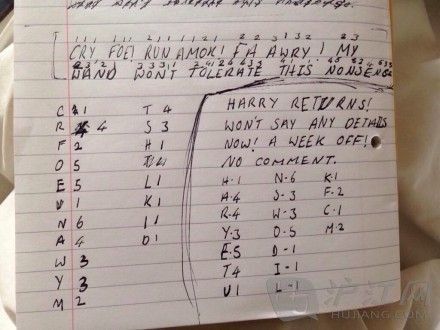 CRY FOE! RUN AMOK! FA AWRY! MY
HAND WON'T TOLERATE THIS NONSENSE
HARRY RETURNS!
WON'T SAY ANY DETAILS
NOW! A WEEK OFF!
NO COMMENT.
C 1 T 4
R 4 S 3
F 2 H 1
O 5
E 5 L 1
U 1 K 1
N 6 I 1
A 4 D 1
W 3
Y 3
M 2
H-1 N-6 K-1
A-4 S-3 F-2
R-4 W-3 C-1
Y-3 O-5 M-2
E-5 D-1
T-4 I-1
U 1 L-1
沪江网
HUJIANG.COM